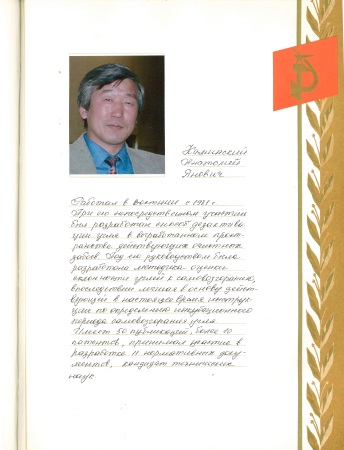 Каминский
Анатолий
Янович
Работал в ВостНИИ с 1971 г.
При его непосредственном участии
был разработан способ дезактива
ции угля в выработанном прост-
ранстве действующих очистных
забоев. Под его руководством была
разработана методика оценки
склонности углей к самовозгоранию,
впоследствии легшая в основу дейст-
вующей в настоящее время инструк-
ции по определению инкубационного
периода самовозгорания угля.
Имеет 50 публикаций, более 10
патентов, принимал участие в
разработке 11 нормативных доку-
ментов, кандидат технических
наук.